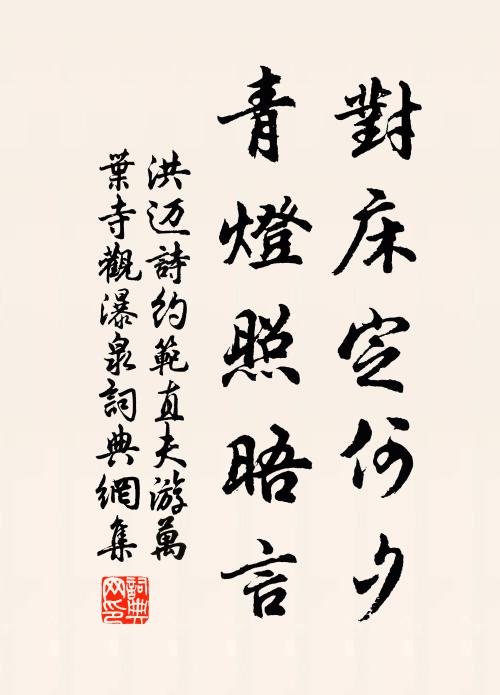 對床定何夕
青燈照晤言
洪迈詩約範直夫游萬
葉寺觀瀑泉詞典網集
詞典网印